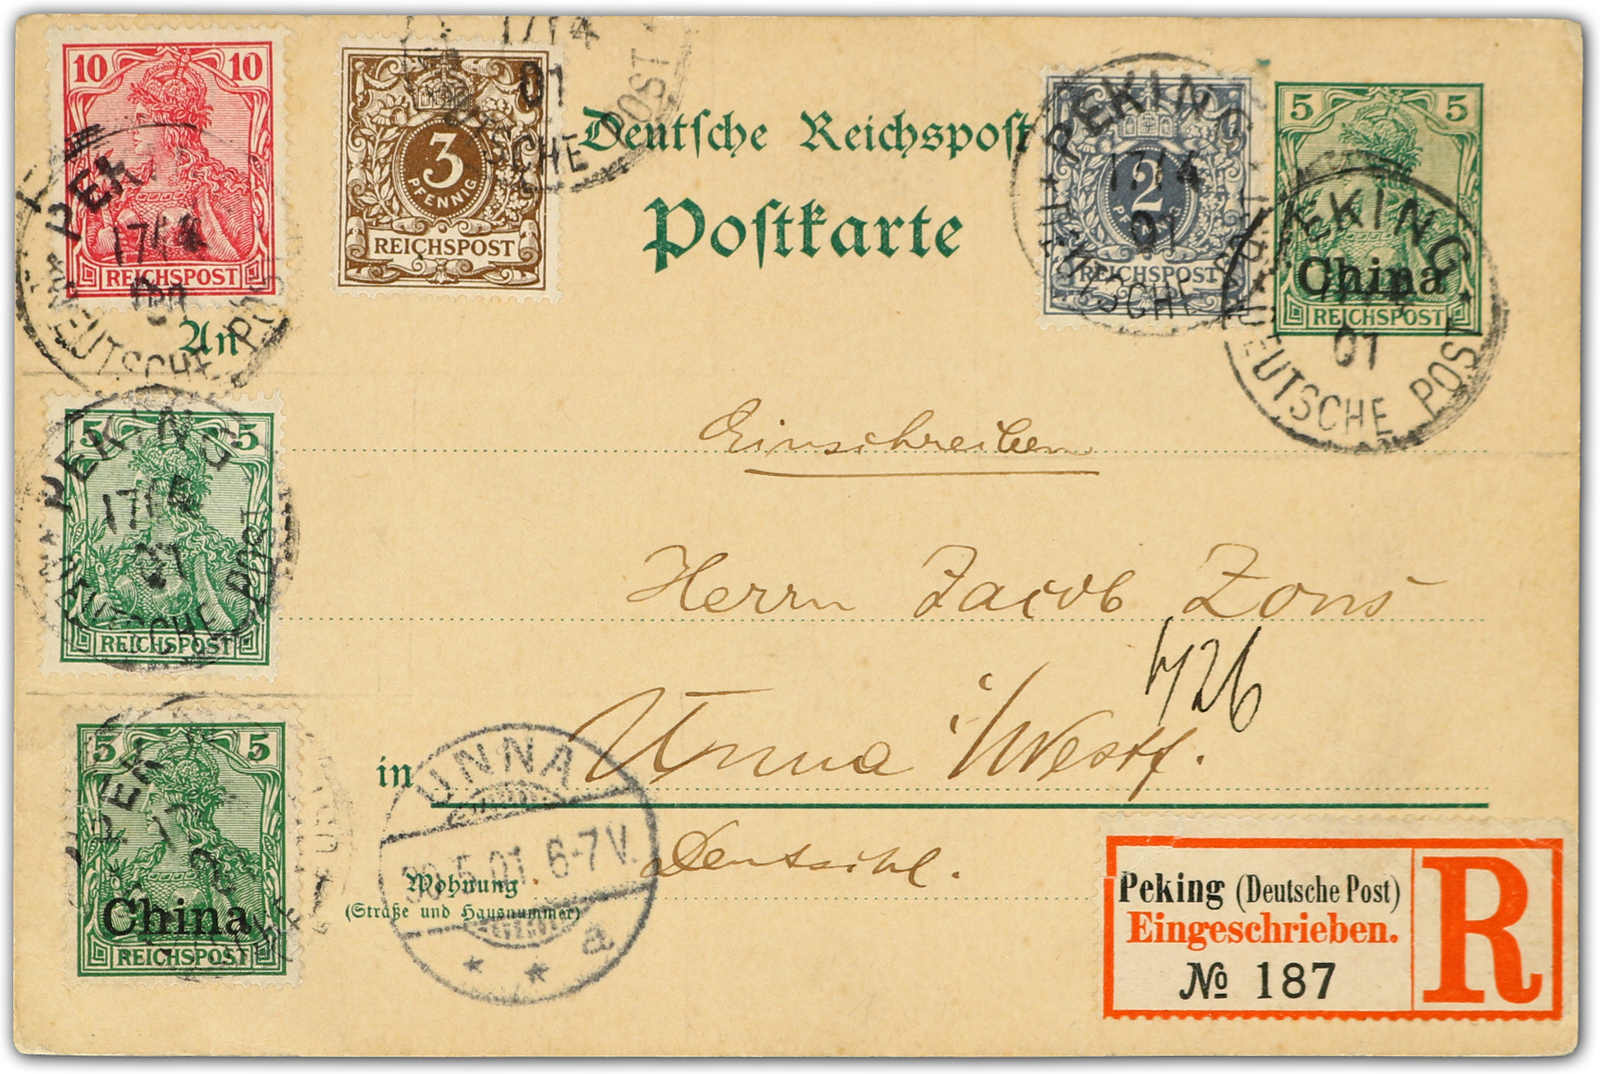 10 10
REICHSPOST
3
PFENNIG
REICHSPOST
17/4
01
DEUTSCHE POST
Deutsche Reichspost
Postkarte
2
REICHSPOST
PEKING
17/4
01
DEUTSCHE POST
5 5
China
REICHSPOST
PEKING
01
DEUTSCHE POST
PEKING
17/4
01
DEUTSCHE POST
An
Einschreiben
5 5
REICHSPOST
PEKING
17/4
01
DEUTSCHE POST
Herrn Jacob Zons
426
in Unna i/Westf.
Deutschl.
5 5
China
REICHSPOST
PEK
UNNA
30.5.01. 6-7 V.
* * a
Wohnung
(Straße und Hausnummer)
Peking (Deutsche Post)
Eingeschrieben.
№ 187
R